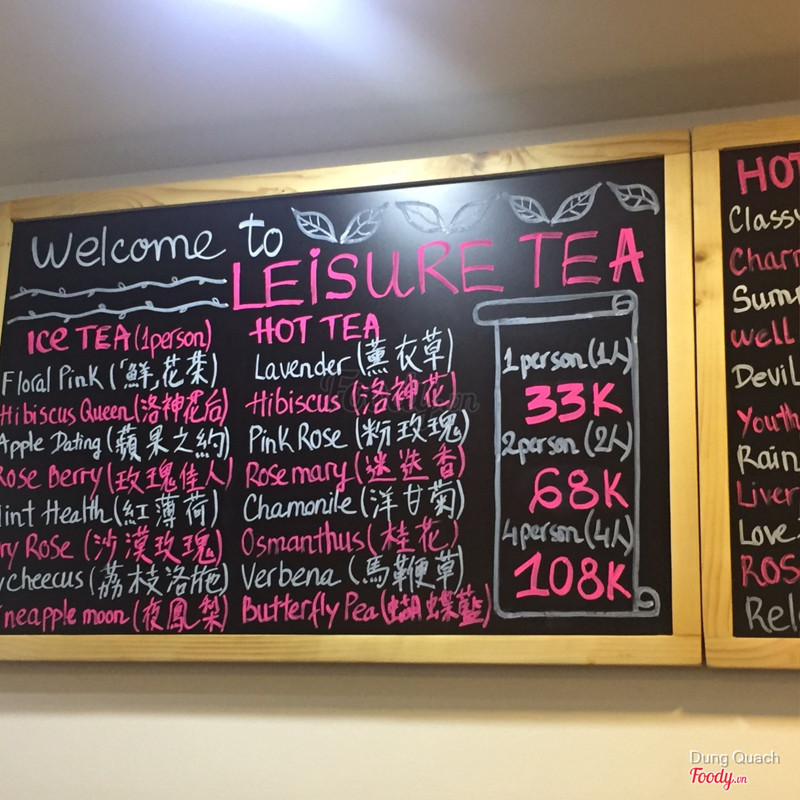 Welcome to
LEISURE TEA
ICE TEA (1person)
Floral Pink (鮮花茶)
Hibiscus Queen (洛神花后)
Apple Dating (蘋果之約)
Rose Berry (玫瑰佳人)
Mint Health (紅薄荷)
Rose (沙漠玫瑰)
(荔枝洛施)
moon (夜鳳梨)
HOT TEA
Lavender (薰衣草)
Hibiscus (洛神花)
Pink Rose (粉玫瑰)
Rosemary (迷迭香)
Chamonile (洋甘菊)
Osmanthus (桂花)
Verbena (馬鞭草)
Butterfly Pea (蝴蝶藍)
1person (1人)
33K
2person (2人)
68K
4person (4人)
108K
HOT
Well
Devil
Youth
Rain
Liver
Love
Dung Quach
Foody.vn